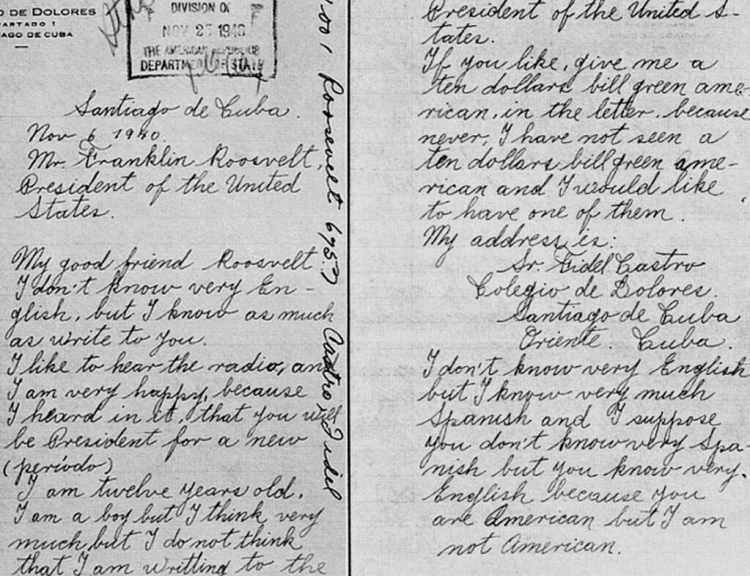 O DE DOLORES
PARTADO 1
AGO DE CUBA
DIVISION OF
NOV 27 1940
THE AMERICAN REPUBLICS
DEPARTMENT OF STATE
Santiago de Cuba.
Nov 6 1940.
Mr. Franklin Roosvelt,
President of the United
States.
My good friend Roosvelt
I don't know very En-
glish, but I know as much
as write to you.
I like to hear the radio, and
I am very happy, because
I heard in it, that you will
be President for a new
(período)
I am twelve years old.
I am a boy but I think very
much but I do not think
that I am writting to the
Roosevelt
Castro, Fidel
President of the United S-
tates.
If you like, give me a
ten dollars bill green ame-
rican, in the letter, because
never, I have not seen a
ten dollars bill green ame-
rican and I would like
to have one of them.
My address is:
Sr. Fidel Castro
Colegio de Dolores.
Santiago de Cuba
Oriente. Cuba.
I don't know very English
but I know very much
Spanish and I suppose
you don't know very Spa-
nish but you know very
English because you
are American but I am
not American.